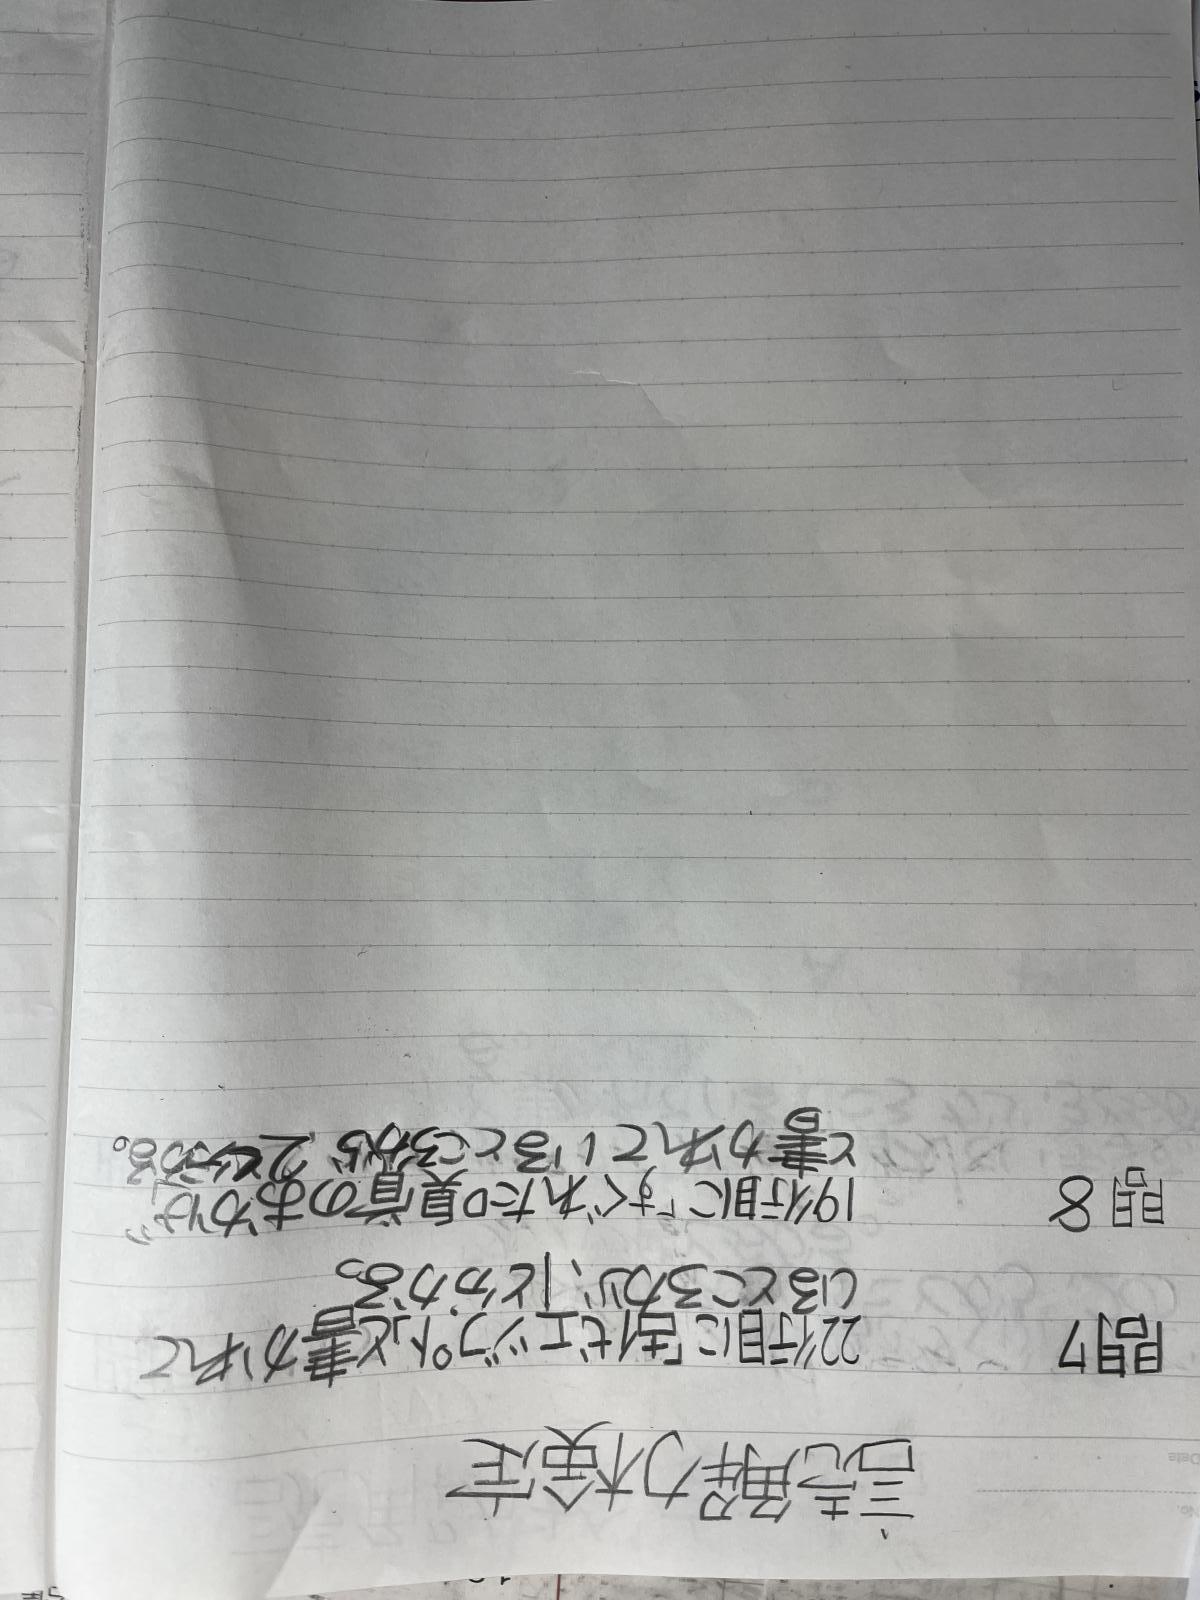 読解力検定
問7 22行目に「古代エジプト」と書かれて
いるところから、1とわかる。
問8 19行目に「すぐれた嗅覚のおかげ」
と書かれているところから、2とわかる。